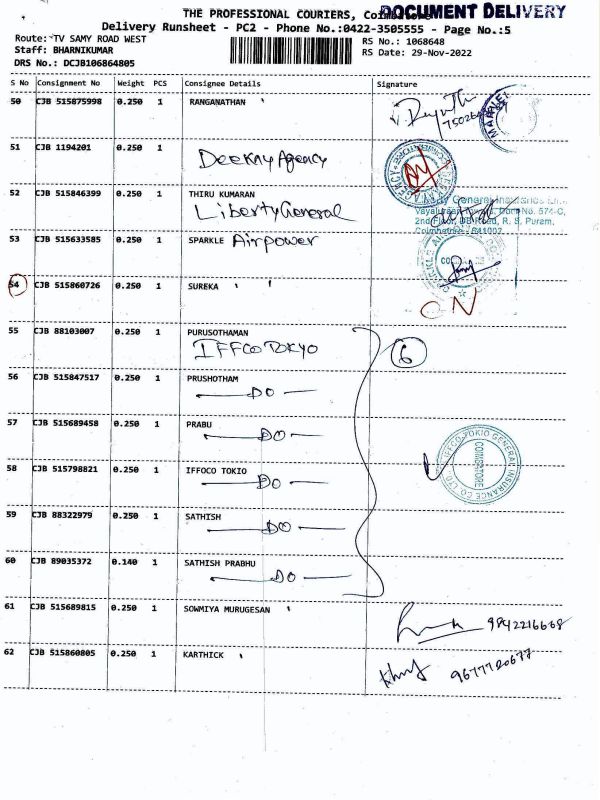 THE PROFESSIONAL COURIERS, Coimbatore
DOCUMENT DELIVERY
Delivery Runsheet - PC2 - Phone No.:0422-3505555 - Page No.:5
Route: TV SAMY ROAD WEST
RS No.: 1068648
Staff: BHARNIKUMAR
RS Date: 29-Nov-2022
DRS No.: DCJB106864805
S No Consignment No Weight PCS Consignee Details Signature
50 CJB 515875998 0.250 1 RANGANATHAN
51 CJB 1194201 0.250 1
Deekay Agency
52 CJB 515846399 0.250 1 THIRU KUMARAN
Liberty General
Liberty General Insurance
2nd Floor, DB Road, R. S. Puram,
Coimbatore - 641002
53 CJB 515633585 0.250 1 SPARKLE Airpower
54 CJB 515860726 0.250 1 SUREKA
ON
55 CJB 88103007 0.250 1 PURUSOTHAMAN
IFFCO TOKYO
6
56 CJB 515847517 0.250 1 PRUSHOTHAM
DO
57 CJB 515689458 0.250 1 PRABU
DO
58 CJB 515798821 0.250 1 IFFOCO TOKIO
DO
IFFCO-TOKIO GENERAL INSURANCE CO. LTD.
COIMBATORE
59 CJB 88322979 0.250 1 SATHISH
DO
60 CJB 89035372 0.140 1 SATHISH PRABHU
DO
61 CJB 515689815 0.250 1 SOWMIYA MURUGESAN
9842216668
62 CJB 515860805 0.250 1 KARTHICK
9677720677